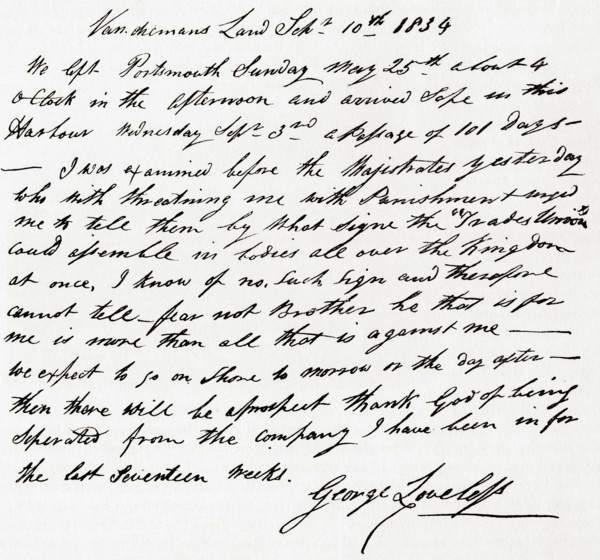 Van.diemans Land Sepr 10th 1834
We left Portsmouth Sunday may 25th about 4
o Clock in the afternoon and arrived Safe in this
Harbour Wednesday Sepr 3rd a Passage of 101 days–
— I was examined before the Majistrates yesterday
who with threatning me with Punishment urged
me to tell them by What Signe the "Trades Unions"
Could assemble in bodies all over the Kingdom
at once, I know of no. Such Sign and therefore
cannot tell – fear not Brother he that is for
me is more than all that is against me —
we expect to go on Shore to morrow or the day after –
then there will be aprospect thank God of being
Seperated from the company I have been in for
the last Seventeen weeks.
George Loveless